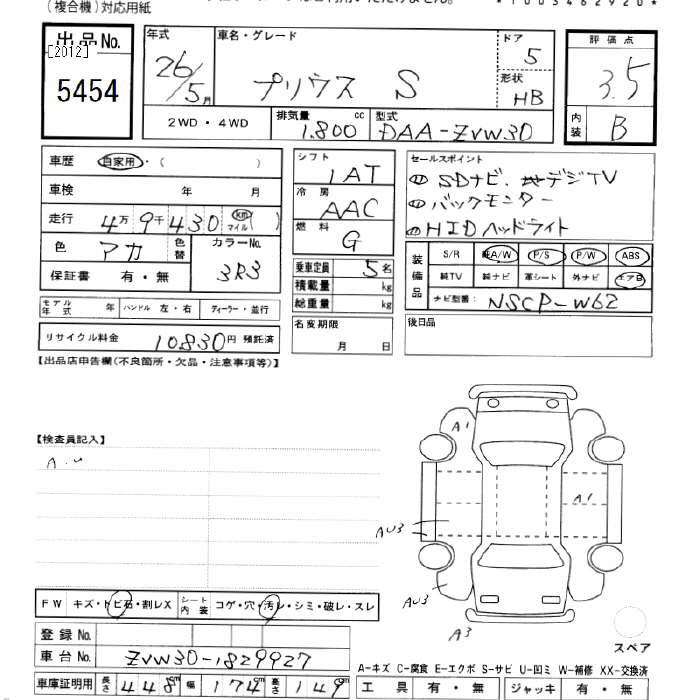 (複合機)対応用紙
*1003462920*
出品No. [2012] 5454
年式 26/5月
車名・グレード プリウス S
ドア 5
形状 HB
評価点 3.5
内装 B
2WD・4WD
排気量 1.800 cc
型式 DAA-ZVW30
車歴 自家用・( )
車検 年 月
走行 4万9千430 km マイル ( )
色 アカ 色替 カラーNo. 3R3
保証書 有・無
シフト 1AT
冷房 AAC
燃料 G
乗車定員 5名
積載量 kg
総重量 kg
セールスポイント
① SDナビ、地デジTV
② バックモニター
③ HIDヘッドライト
装備品 S/R 純A/W P/S P/W ABS
純TV 純ナビ 革シート 外ナビ エアB
ナビ型番: NSCP-W62
モデル年式 年 ハンドル 左・右 ディーラー・並行
リサイクル料金 10830円 預託済
名変期限 月 日
後日品
【出品店申告欄(不良箇所・欠品・注意事項等)】
【検査員記入】
A1
A1
AU3
AU3
A3
FW キズ・トビ石・割レX シート内装 コゲ・穴・汚レ・シミ・破レ・スレ
登録No.
車台No. ZVW30-1829927
スペア
A-キズ C-腐食 E-エクボ S-サビ U-凹ミ W-補修 XX-交換済
車庫証明用 長さ 448cm 幅 174cm 高さ 149cm
工具 有・無 ジャッキ 有・無